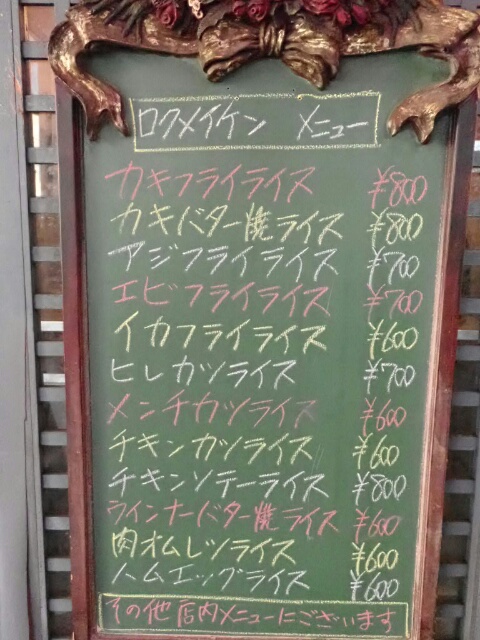 ロクメイケン メニュー
カキフライライス ¥800
カキバター焼ライス ¥800
アジフライライス ¥700
エビフライライス ¥700
イカフライライス ¥600
ヒレカツライス ¥700
メンチカツライス ¥600
チキンカツライス ¥600
チキンソテーライス ¥800
ウインナーバター焼ライス ¥600
肉オムレツライス ¥600
ハムエッグライス ¥600
その他店内メニューにございます